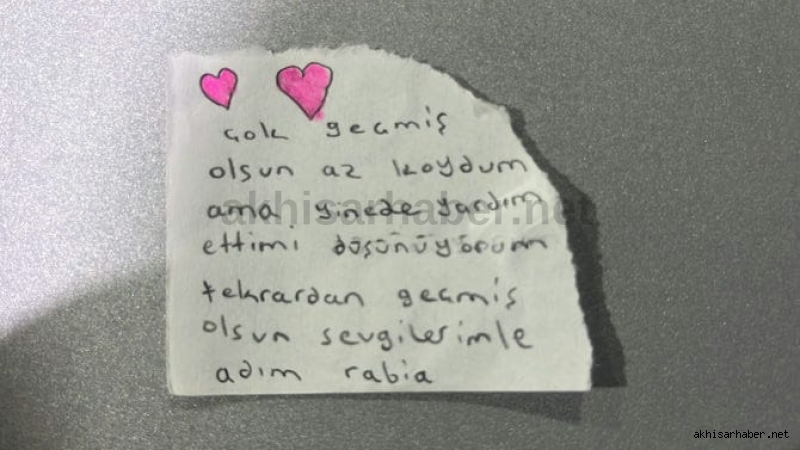 çok geçmiş
olsun az koydum
ama yinede yardım
ettimi düşünüyörum
tekrardan geçmiş
olsun sevgilerimle
adım rabia
akhisarhaber.net
akhisarhaber.net